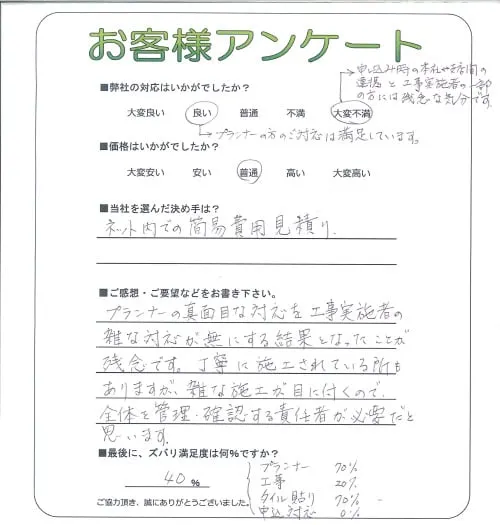 お客様アンケート
■弊社の対応はいかがでしたか？
申し込み時の本社や支店間の
連携と工事実施者の一部
の方には残念な気分です。
大変良い 良い 普通 不満 大変不満
→プランナーの方のご対応は満足しています。
■価格はいかがでしたか？
大変安い 安い 普通 高い 大変高い
■当社を選んだ決め手は？
ネット内での簡易費用見積り.
■ご感想・ご要望などをお書き下さい。
プランナーの真面目な対応を工事実施者の
雑な対応が無にする結果となったことが
残念です。丁寧に施工されている所も
ありますが、雑な施工が目に付くので、
全体を管理・確認する責任者が必要だと
思います。
■最後に、ズバリ満足度は何%ですか？
40 %
プランナー 70%
工事 20%
タイル貼り 70%
申込対応 0%
ご協力頂き、誠にありがとうございました。